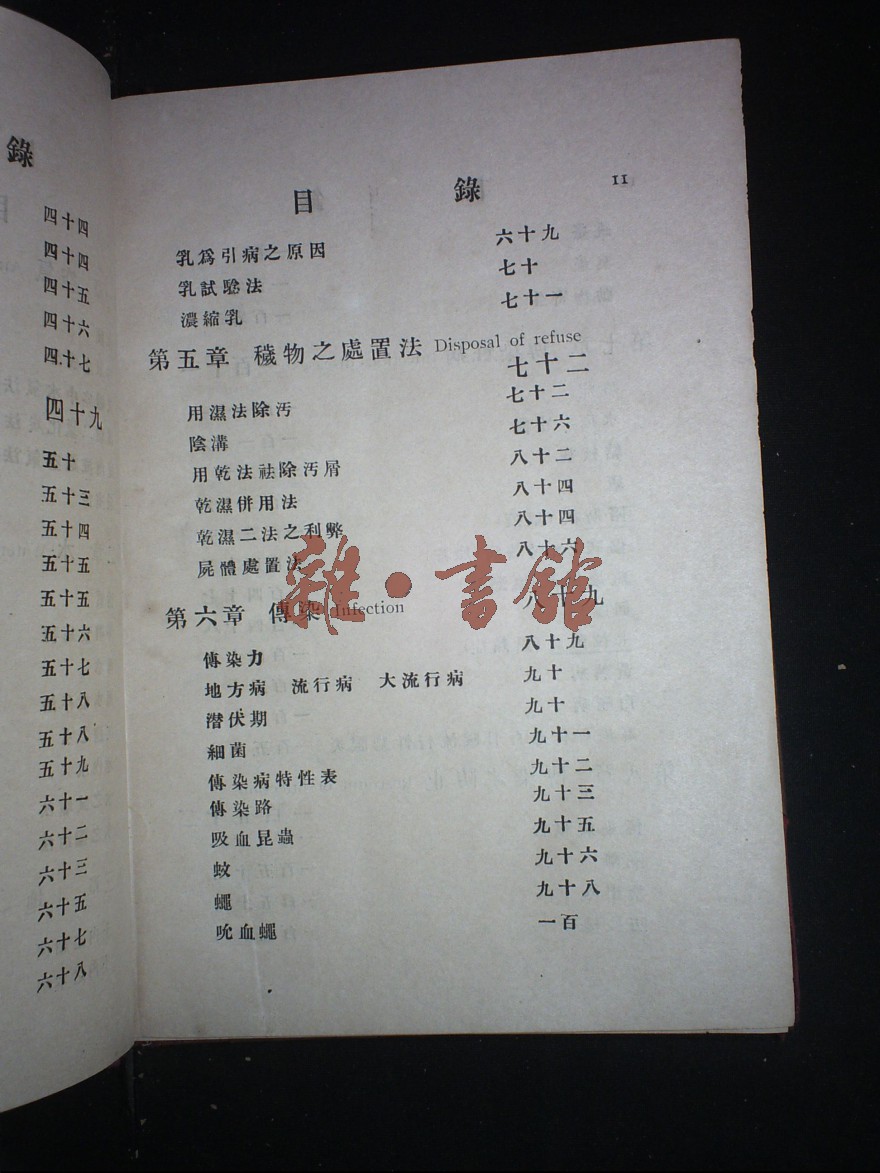 錄
四十四
四十四
四十五
四十六
四十七
四十九
五十
五十三
五十四
五十五
五十五
五十六
五十七
五十八
五十八
五十九
六十一
六十二
六十三
六十五
六十七
六十八
目 錄 II
乳爲引病之原因 六十九
乳試驗法 七十
濃縮乳 七十一
第五章 穢物之處置法 Disposal of refuse 七十二
用濕法除汚 七十二
陰溝 七十六
用乾法祛除汚屑 八十二
乾濕併用法 八十四
乾濕二法之利弊 八十四
屍體處置法 八十六
第六章 傳染 Infection 八十九
傳染力 八十九
地方病 流行病 大流行病 九十
潛伏期 九十
細菌 九十一
傳染病特性表 九十二
傳染路 九十三
吸血昆蟲 九十五
蚊 九十六
蠅 九十八
吮血蠅 一百
雜·書館